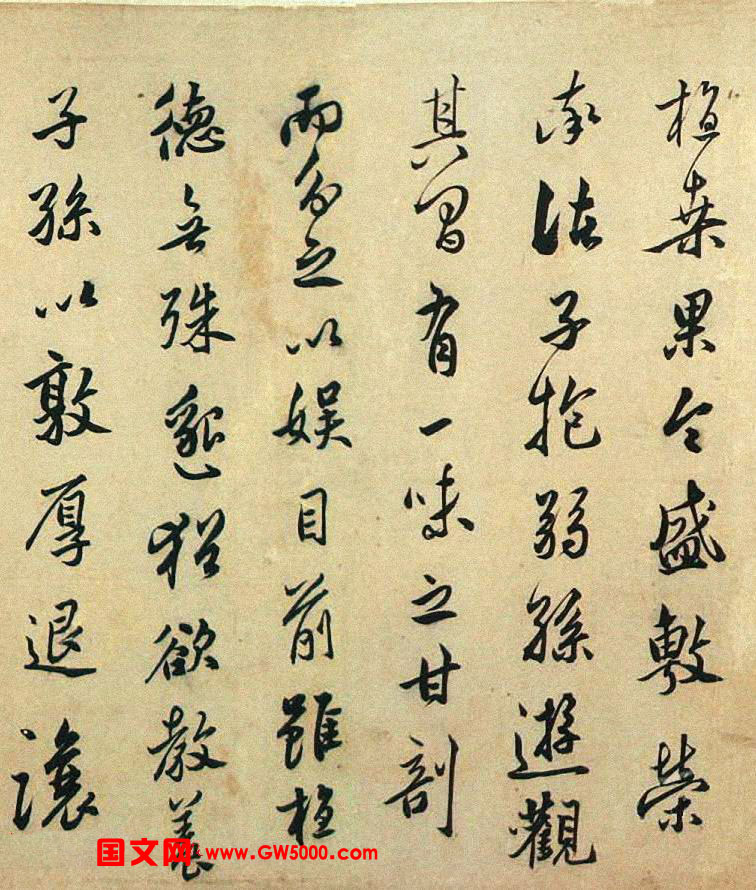 植桑果今盛敷榮
率諸子抱弱孫遊觀
其間有一味之甘剖
而分之以娱目前雖植
德無殊邈猶欲教養
子孫以敦厚退讓
国文网 www.GW5000.com